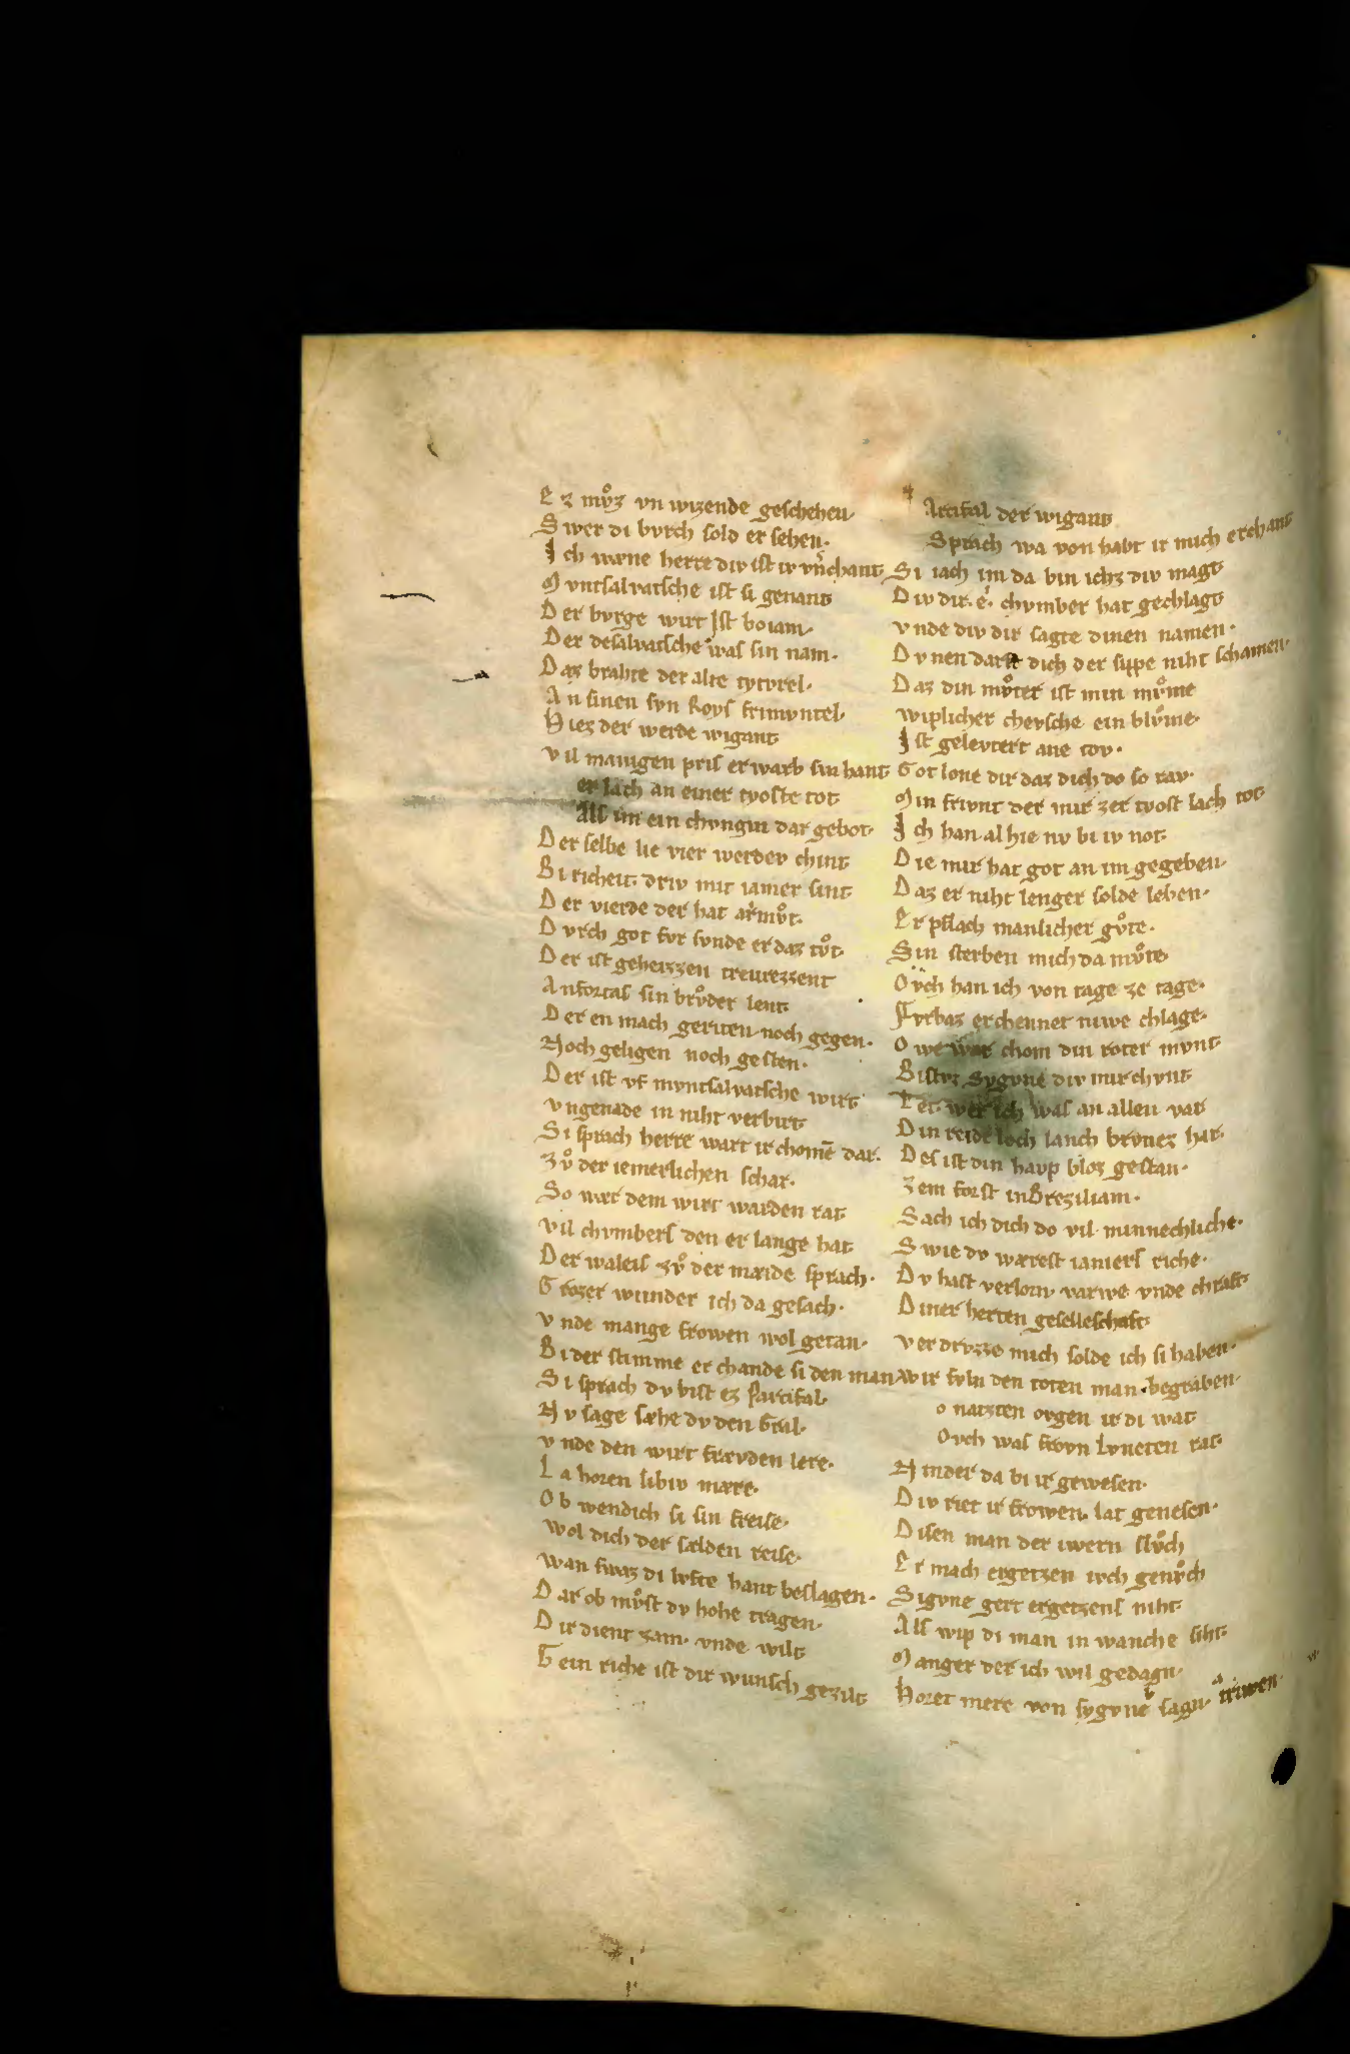 Ez mvͦz vn wizende geschehen·
Swer di bvrch sold er sehen·
Ich wæne herre div ist iv vn̄chant
Mvntsalvatsche ist si genant
Der bvrge wirt Ist boiam·
Der desalvatsche was sin nam·
Daz brahte der alte tytvrel·
An sinen svn Roys frimvntel·
Hiez der werde wigant
vil manigen pris erwarb sin hant
er lach an einer tyoste tot
Als im ein chvngin dar gebot·
Der selbe lie vier werdev chint
Bi richeit· driv mit iamer sint
Der vierde der hat armvͦt·
Dvrch got fvr svnde er daz tvͦt·
Der ist geheizzen trevrezzent
Anfortas sin brvͦder lent
Der en mach geriten noch gegen·
Noch geligen noch gesten·
Der ist vf mvntsalvatsche wirt
vngenade in niht verbirt
Si sprach herre wart ir chomē dar·
Zvͦ der iemerlichen schar·
So wær dem wirt warden rat
vil chvmbers den er lange hat
Der waleis zvͦ der mæide sprach·
Grozer wunder ich da gesach·
vnde mange frowen wol getan·
Bi der stimme er chande si den man
Si sprach dv bist ez Parcifal·
Nv sage sæhe dv den Gral·
vnde den wirt frævden lere·
La horen libiv mære·
Ob wendich si sin freise·
wol dich der sælden reise·
wan swaz di lvfte hant beslagen·
Dar ob mvͦst dv hohe tragen·
Dir dient zam· vnde wilt
Gein riche ist dir wunsch gezilt
Arcifal der wigant
Sprach wa von habt ir mich erchant
Si iach im da bin ichz div magt
Div dir· e· chvmber hat gechlagt
vnde div dir sagte dinen namen·
Dvnen darft dich der sippe niht schamen·
Daz din mvͦter ist min mvͦme
wiplicher chevsche ein blvͦme·
Ist gelevtert ane tov·
Got lone dir daz dich do so rav·
Min frivnt der mir zer tyost lach tot
Ich han al hie nv bi iv not·
Die mir hat got an im gegeben·
Daz er niht lenger solde leben·
Er pflach manlicher gvͦte·
Sin sterben mich da mvͦte
Ovch han ich von tage ze tage·
Fvrbaz erchennet niwe chlage·
Owe war chom din roter mvnt
Bistvz Sygvne div mir chvnt
Tet· wer ich was an allen var
Din reide loch lanch brvnez har·
Des ist din havp bloz gestan·
Zem forst in Breziliam·
Sach ich dich do vil minnechliche·
Swie dv wærest iamers riche·
Dv hast verlorn varwe vnde chraft·
Diner herten geselleschaft·
verdrvzze mich solde ich si haben·
wir svln den toten man·begraben·
o natzten ovgen ir di wat
Ovch was frovn Lvneten rat·
Ninder da bi ir gewesen·
Div riet ir frowen· lat genesen·
Disen man der iwern slvͦch
Er mach ergetzen ivch genvͦch
Sigvne gert ergetzens niht
Als wip di man in wanche siht·
Manger der ich wil gedagn·
Horet mere von sygvne b sagn· a triwen·